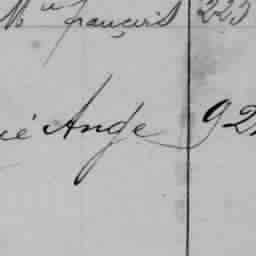 M françois 223
ié Ange 92